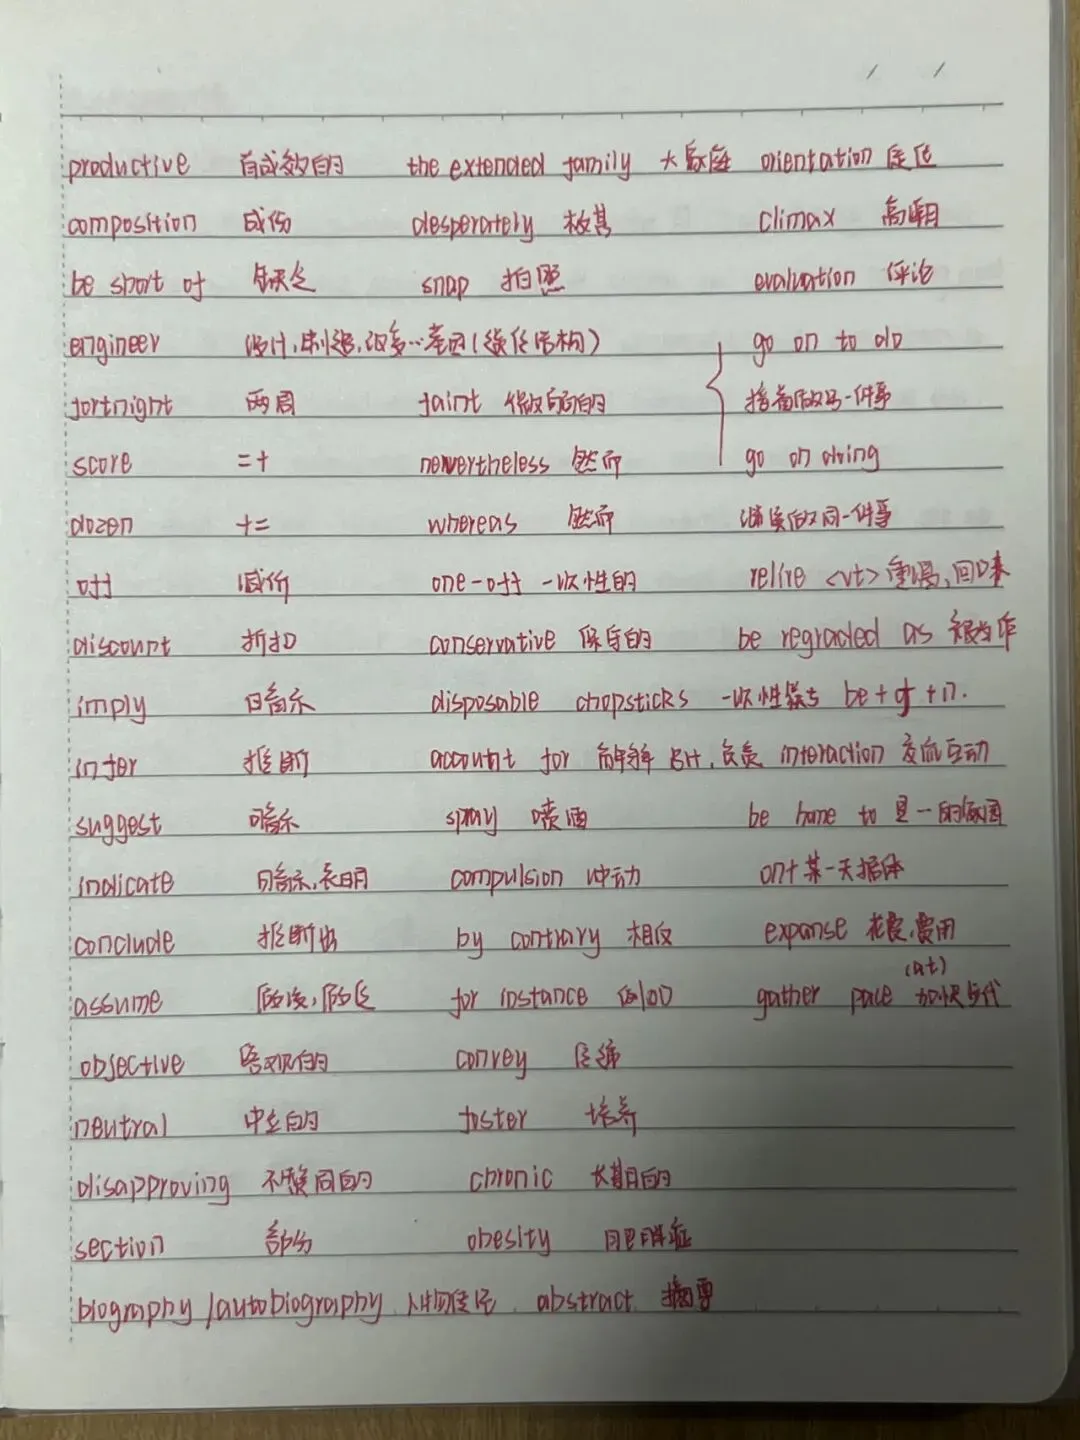 productive 有成效的 the extended family 大家庭 orientation 定位
composition 成份 desperately 极其 climax 高潮
be short of 缺乏 snap 拍照 evaluation 评论
engineer 设计,制造,改变…基因(或任结构) go on to do
fortnight 两周 faint 微弱的 接着做另一件事
score 二十 nevertheless 然而 go on doing
dozen 十二 whereas 然而 继续做同一件事
off 减价 one-off 一次性的 relive <vt> 重温,回味
discount 折扣 conservative 保守的 be regraded as 被当作
imply 暗示 disposable chopsticks 一次性筷子 be + of + n.
infer 推断 account for 解释 占比,负责 interaction 交流互动
suggest 暗示 spray 喷洒 be home to 是一的家园
indicate 暗示,表明 compulsion 冲动 on+某一天具体
conclude 推断出 by contrary 相反 expanse 花费,费用
assume 假设,假定 for instance 例如 gather pace (at) 加快步伐
objective 客观的 convey 传递
neutral 中立的 foster 培养
disapproving 不赞同的 chronic 长期的
section 部分 obesity 肥胖症
biography /autobiography 人物传记 abstract 摘要